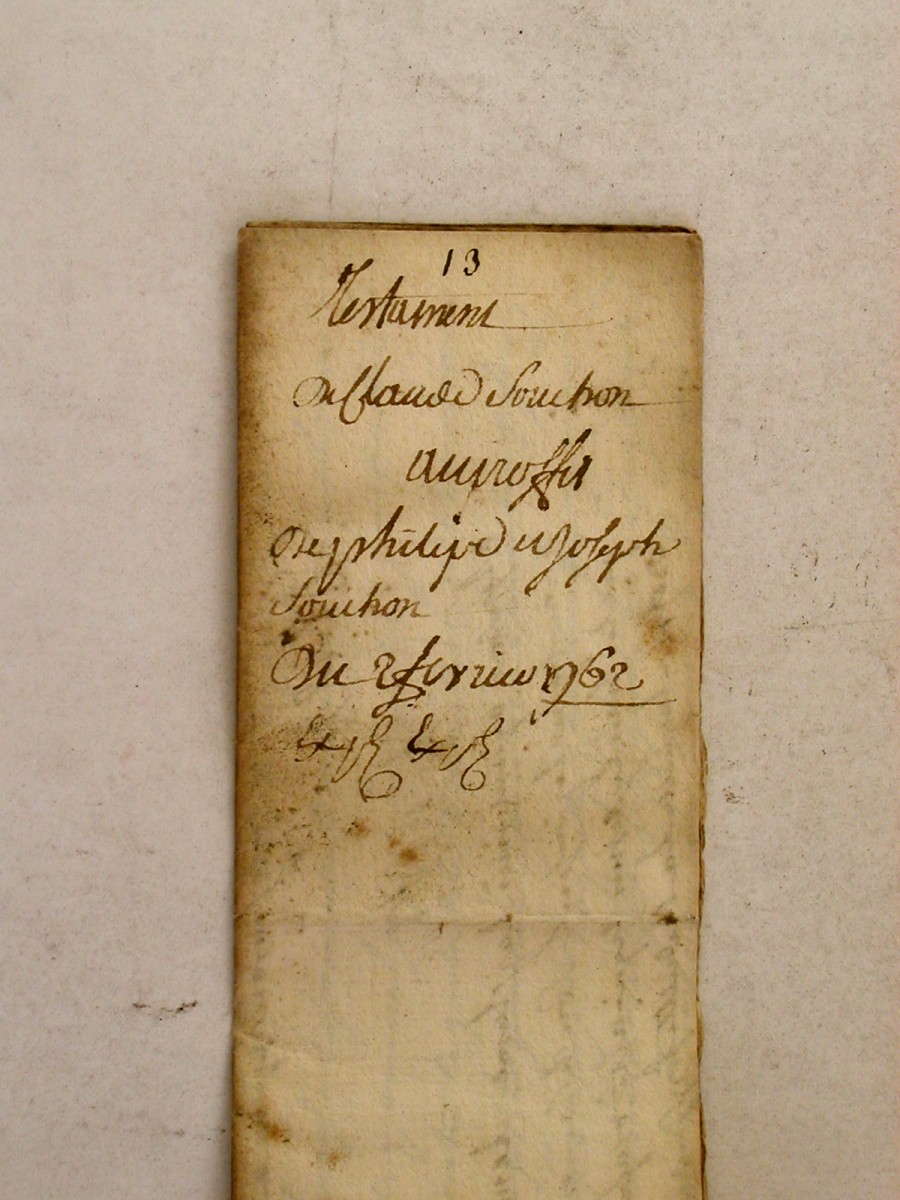 13
Testament
De Claude Souchon
au proffit
De philipe et Joseph
Souchon
Du 2 fevrier 1762